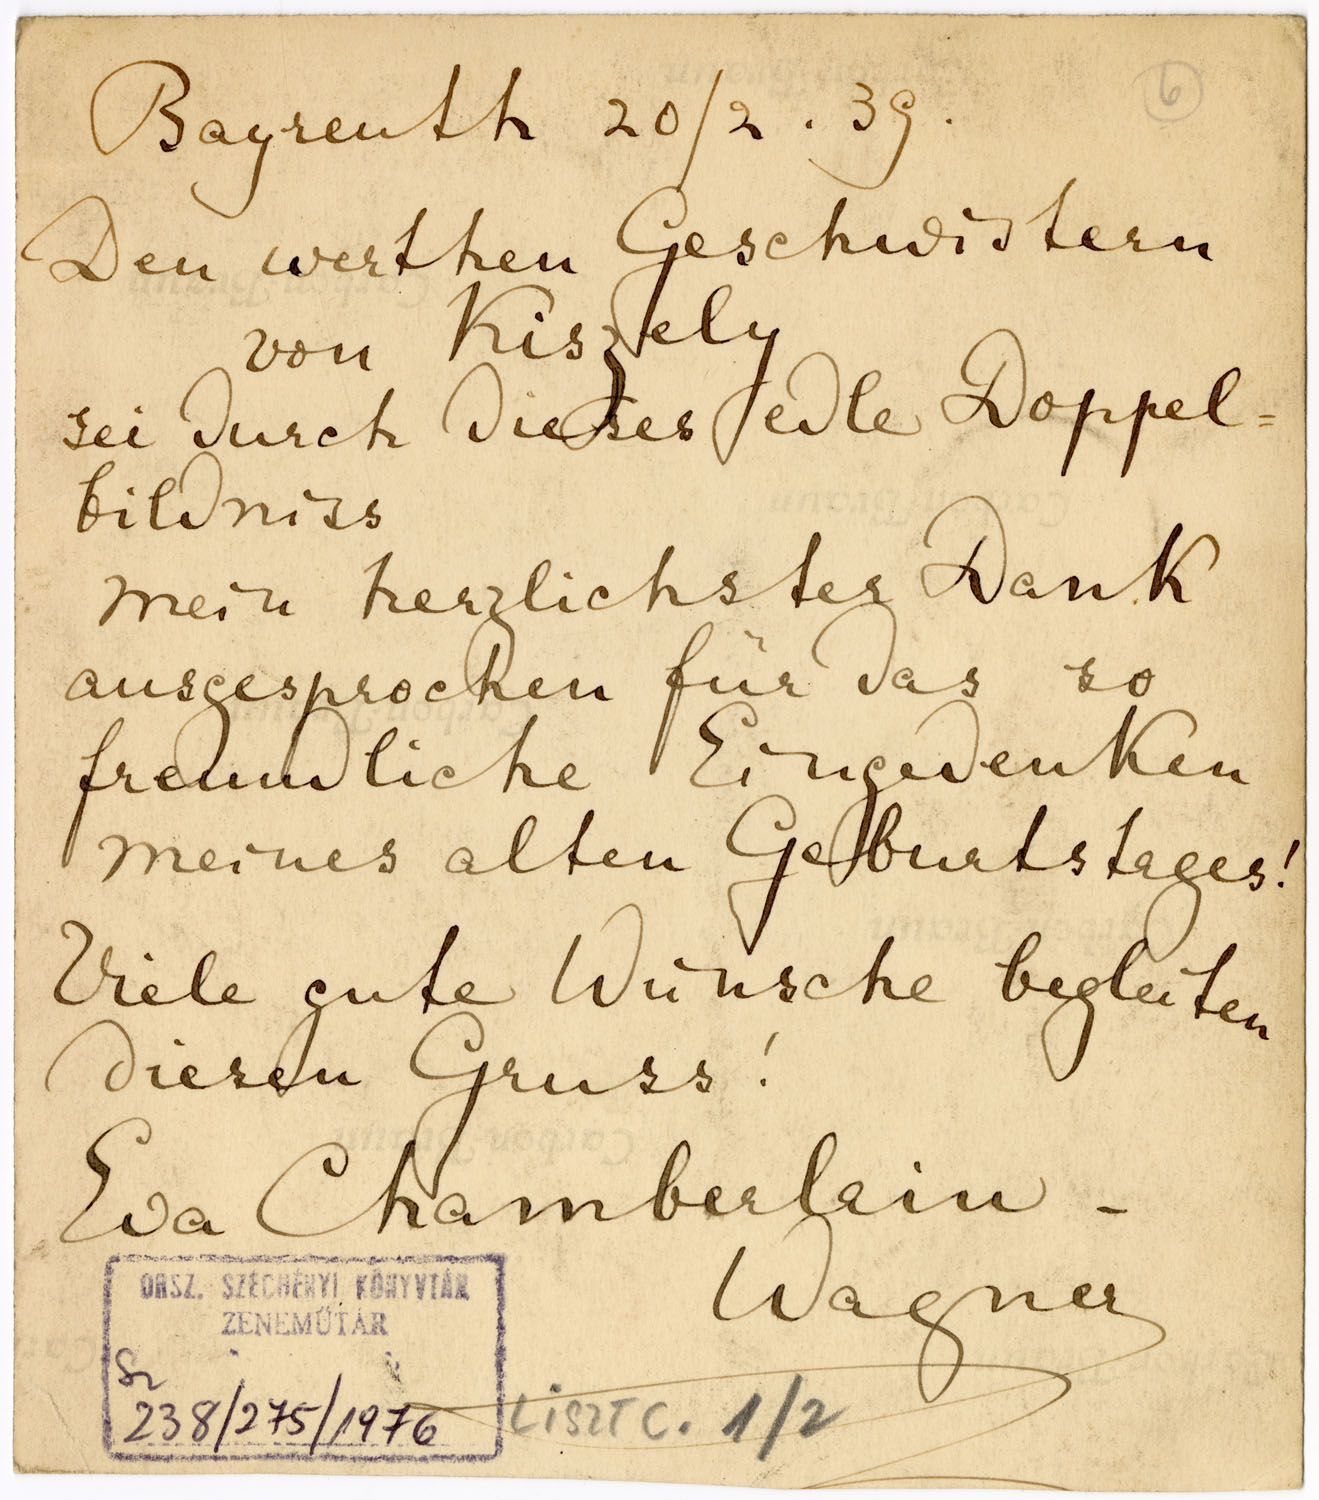 6
Bayreuth 20/2. 39.
Den werthen Geschwistern
von Kiszely
sei durch dieses edle Doppel=
bildniss
mein herzlichster Dank
ausgesprochen für das so
freundliche Eingedenken
meines alten Geburtstages!
Viele gute Wünsche begleiten
diesen Gruss!
Eva Chamberlain -
Wagner
ORSZ. SZÉCHÉNYI KÖNYVTÁR
ZENEMŰTÁR
238/275/1976
LISZT C. 1/2